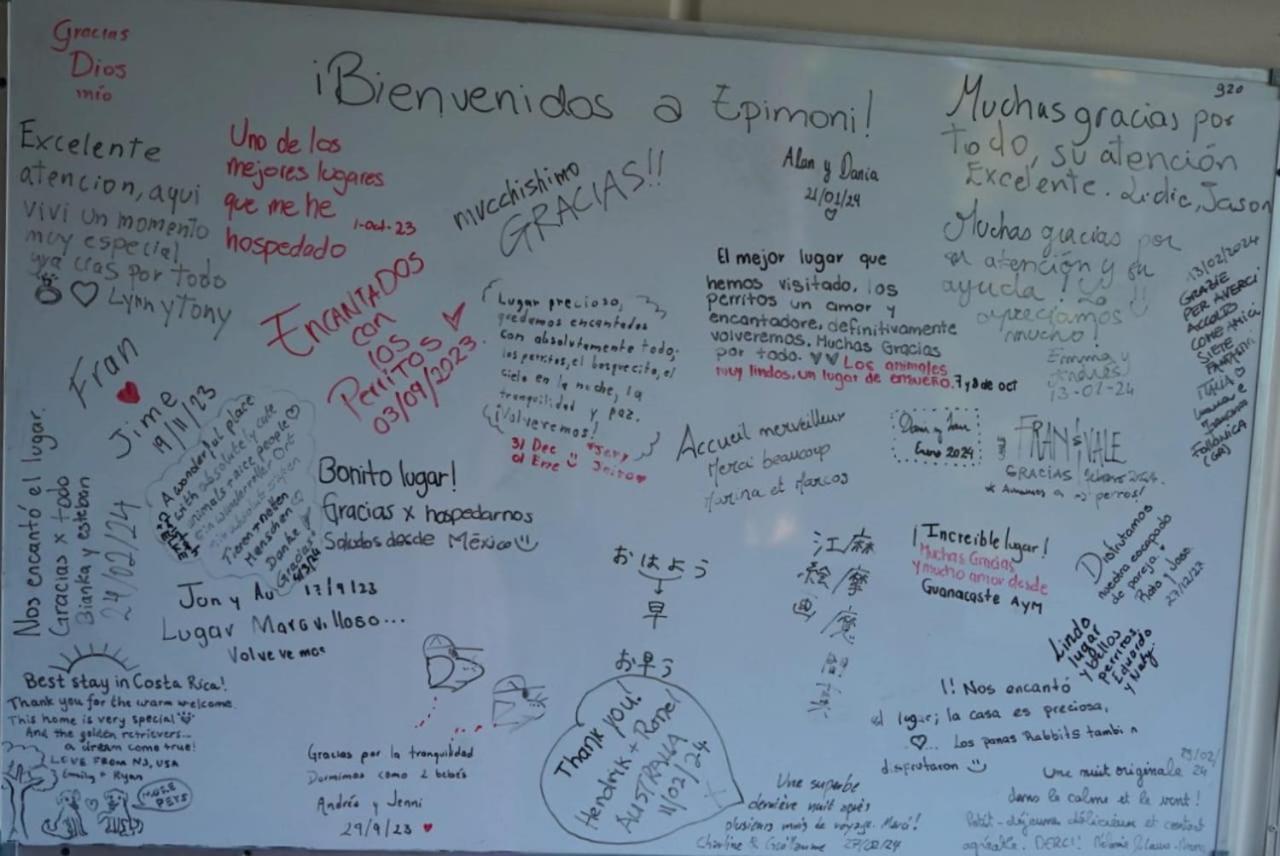 Gracias
Dios
mío
¡Bienvenidos a Epimoni!
920
Muchas gracias por
todo, su atención
Excelente. Lidic, Jason
Excelente
atencion, aqui
vivi un momento
muy especial
gracias por todo
Lynn y Tony
Uno de los
mejores lugares
que me he
hospedado
1-oct-23
mucchishimo
GRACIAS!!
Alan y Dania
21/01/24
Muchas gracias por
su atención y su
ayuda! Lo
apreciamos
mucho!
Emma y
Andrés
13-02-24
13/02/2024
GRAZIE
PER AVERCI
ACCOLTO
COME AMICI
SIETE
FANTASTICI
ITALIA
FOLLONICA
(GR)
ENCANTADOS
con
los
Perritos
03/09/2023
Lugar precioso,
quedamos encantados
con absolutamente todo,
los perritos, el bosquecito, el
cielo en la noche, la
tranquilidad y paz.
¡Volveremos!
31 Dec
01 Ene
El mejor lugar que
hemos visitado, los
perritos un amor y
encantadore, definitivamente
volveremos. Muchas Gracias
por todo. ♥♥ Los animales
muy lindos, un lugar de ensueño. 7 y 8 de oct
Fran
Jime
19/11/23
Nos encantó el lugar.
Gracias x todo
Bianka y esteban
24/02/24
A wonderful place
with absolutely cute
animals + nice people
Ein wundervoller Ort
Tieren + netten
Menschen
Danke
Gracias
Bonito lugar!
Gracias x hospedarnos
Saludos desde México
Accueil merveilleux
Merci beaucoup
Marina et Marcos
Enero 2024
FRAN & VALE
GRACIAS febrero 2024.
* Amamos a perros!
Jon y Au 17/9/23
Lugar Maravilloso...
Volveremos
おはよう
早
お早う
江麻
絵摩
画魔
¡Increible lugar!
Muchas Gracias
y mucho amor desde
Guanacaste AyM
Disfrutamos
nuestra escapada
de pareja
27/12/23
Lindo
lugar
y bellos
perritos,
Eduardo
y Naty.
Best stay in Costa Rica!
Thank you for the warm welcome.
This home is very special
And the golden retrievers...
a dream come true!
LOVE FROM NJ, USA
Emily + Ryan
MORE
PETS
Gracias por la tranquilidad
Dormimos como 2 bebés
Andrés y Jenni
29/9/23
Thank you!
Hendrik + Ronel
AUSTRALIA
11/02/24
¡! Nos encantó
el lugar; la casa es preciosa,
... Los panas Rabbits tambi n
disfrutaron
Une superbe
dernière nuit après
plusieurs mois de voyage. Merci!
Charline & Guillaume 27/02/24
29/02/
24
Une nuit originale
dans le calme et le vent!
Petit-déjeuner délicieux et contact
agréable. MERCI! Mélanie